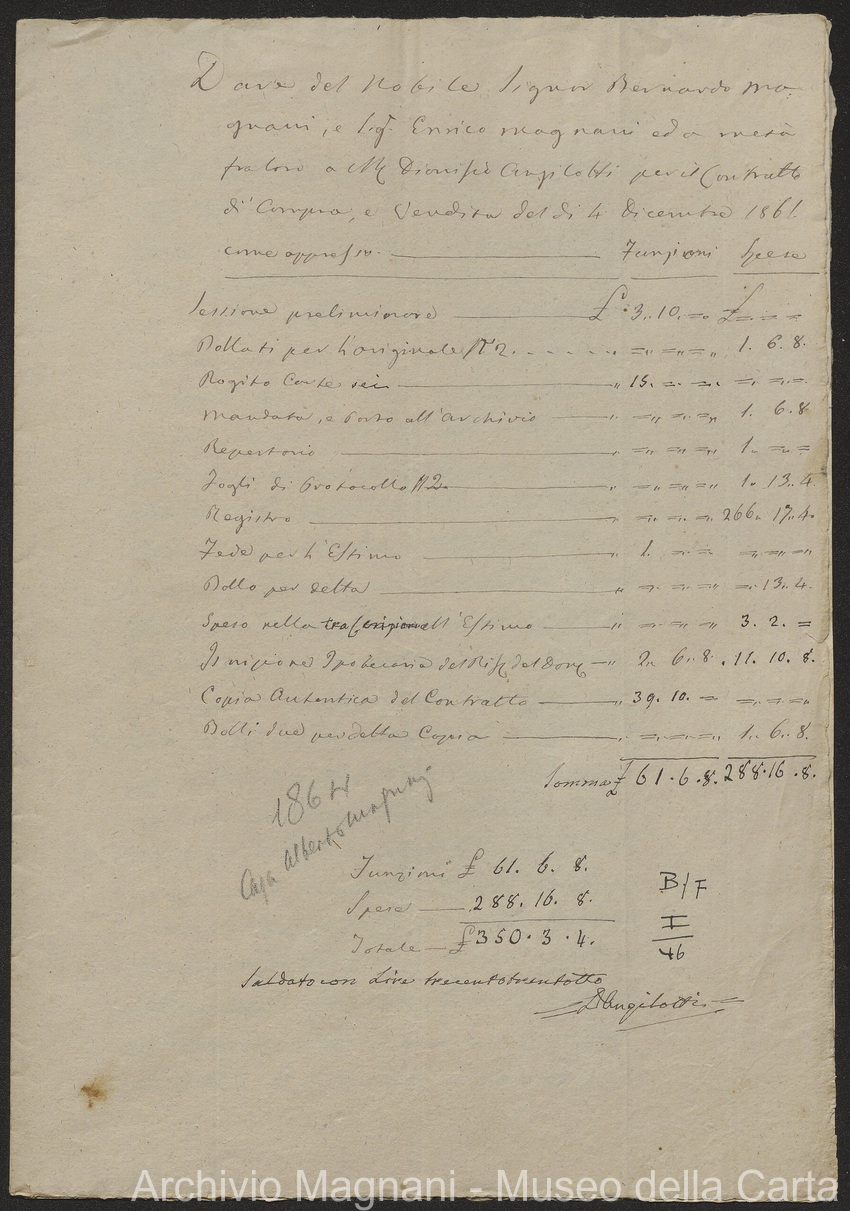 Dare del Nobile Signor Bernardo Ma-
gnani, e Sig. Enrico Magnani ed a metà
fra loro a Dionisio Angilotti per il Contratto
di Compra, e Vendita del dì 4 Dicembre 1861.
come appresso. Funzioni Spese
Sessione preliminare £ 3.. 10. = £ = = =
Bollati per l'originale N° 2. =„ =„ =„ 1. 6. 8.
Rogito Carte sei „ 15. =. =. =. =. =.
Mandata, e Porto all'Archivio „ =„ =„ =„ 1. 6. 8
Repertorio „ =„ =„ =„ 1. = =
Fogli di Protocollo N 2. „ =„ =„ =„ 1. 13. 4
Registro „ =. =. =. 266. 17. 4.
Fede per l'Estimo „ 1. = = =„ =„ =„
Bollo per detta „ =„ =„ =„ =. 13. 4.
Spese nella all'Estimo „ =„ =„ =„ 3. 2. =
Ipotecaria del del „ 2. 6. 8. 11. 10. 8.
Copia Autentica del Contratto „ 39. 10. = =. =. =
Bolli due per detta Copia „ =. =. =. 1. 6. 8.
Somma £ 61. 6. 8. 288. 16. 8.
1864
Casa Alberto Magnani
Funzioni £ 61. 6. 8.
Spese 288. 16. 8.
Totale £ 350. 3. 4.
B/F
I
46
Saldato con Lire trecentotrentotto
D Angilotti
Archivio Magnani - Museo della Carta